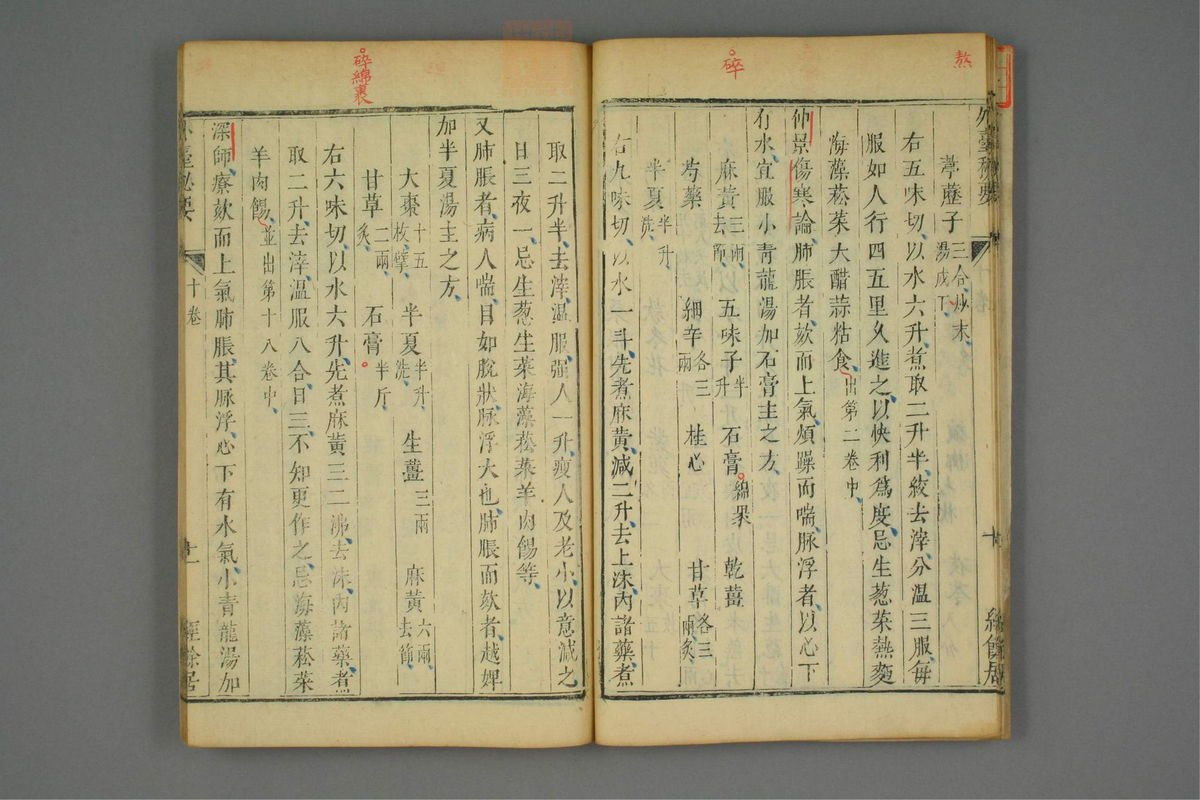 熬
碎
外臺秘要
十
經餘居
葶藶子三合炒末湯成下
右五味切以水六升煮取二升半絞去滓分溫三服每
服如人行四五里久進之以快利爲度忌生葱菜熱麵
海藻菘菜大醋蒜粘食出第二卷中
仲景傷寒論肺脹者欬而上氣煩躁而喘脉浮者以心下
有水宜服小青龍湯加石膏主之方
麻黃三兩去節 五味子半升 石膏綿裹 乾薑
芍藥 細辛各三兩 桂心 甘草各三兩炙
半夏半升洗
右九味切以水一斗先煮麻黃減二升去上沫內諸藥煮
碎綿裹
取二升半去滓溫服强人一升瘦人及老小以意減之
日三夜一忌生葱生菜海藻菘菜羊肉餳等
又肺脹者病人喘目如脫狀脉浮大也肺脹而欬者越婢
加半夏湯主之方
大棗十五枚擘 半夏半升洗 生薑三兩 麻黃六兩去節
甘草二兩炙 石膏半斤
右六味切以水六升先煮麻黃三二沸去沫內諸藥煮
取二升去滓溫服八合日三不知更作之忌海藻菘菜
羊肉餳並出第十八卷中
深師療欬而上氣肺脹其脉浮心下有水氣小青龍湯加
外臺秘要
十卷
十一
經餘居